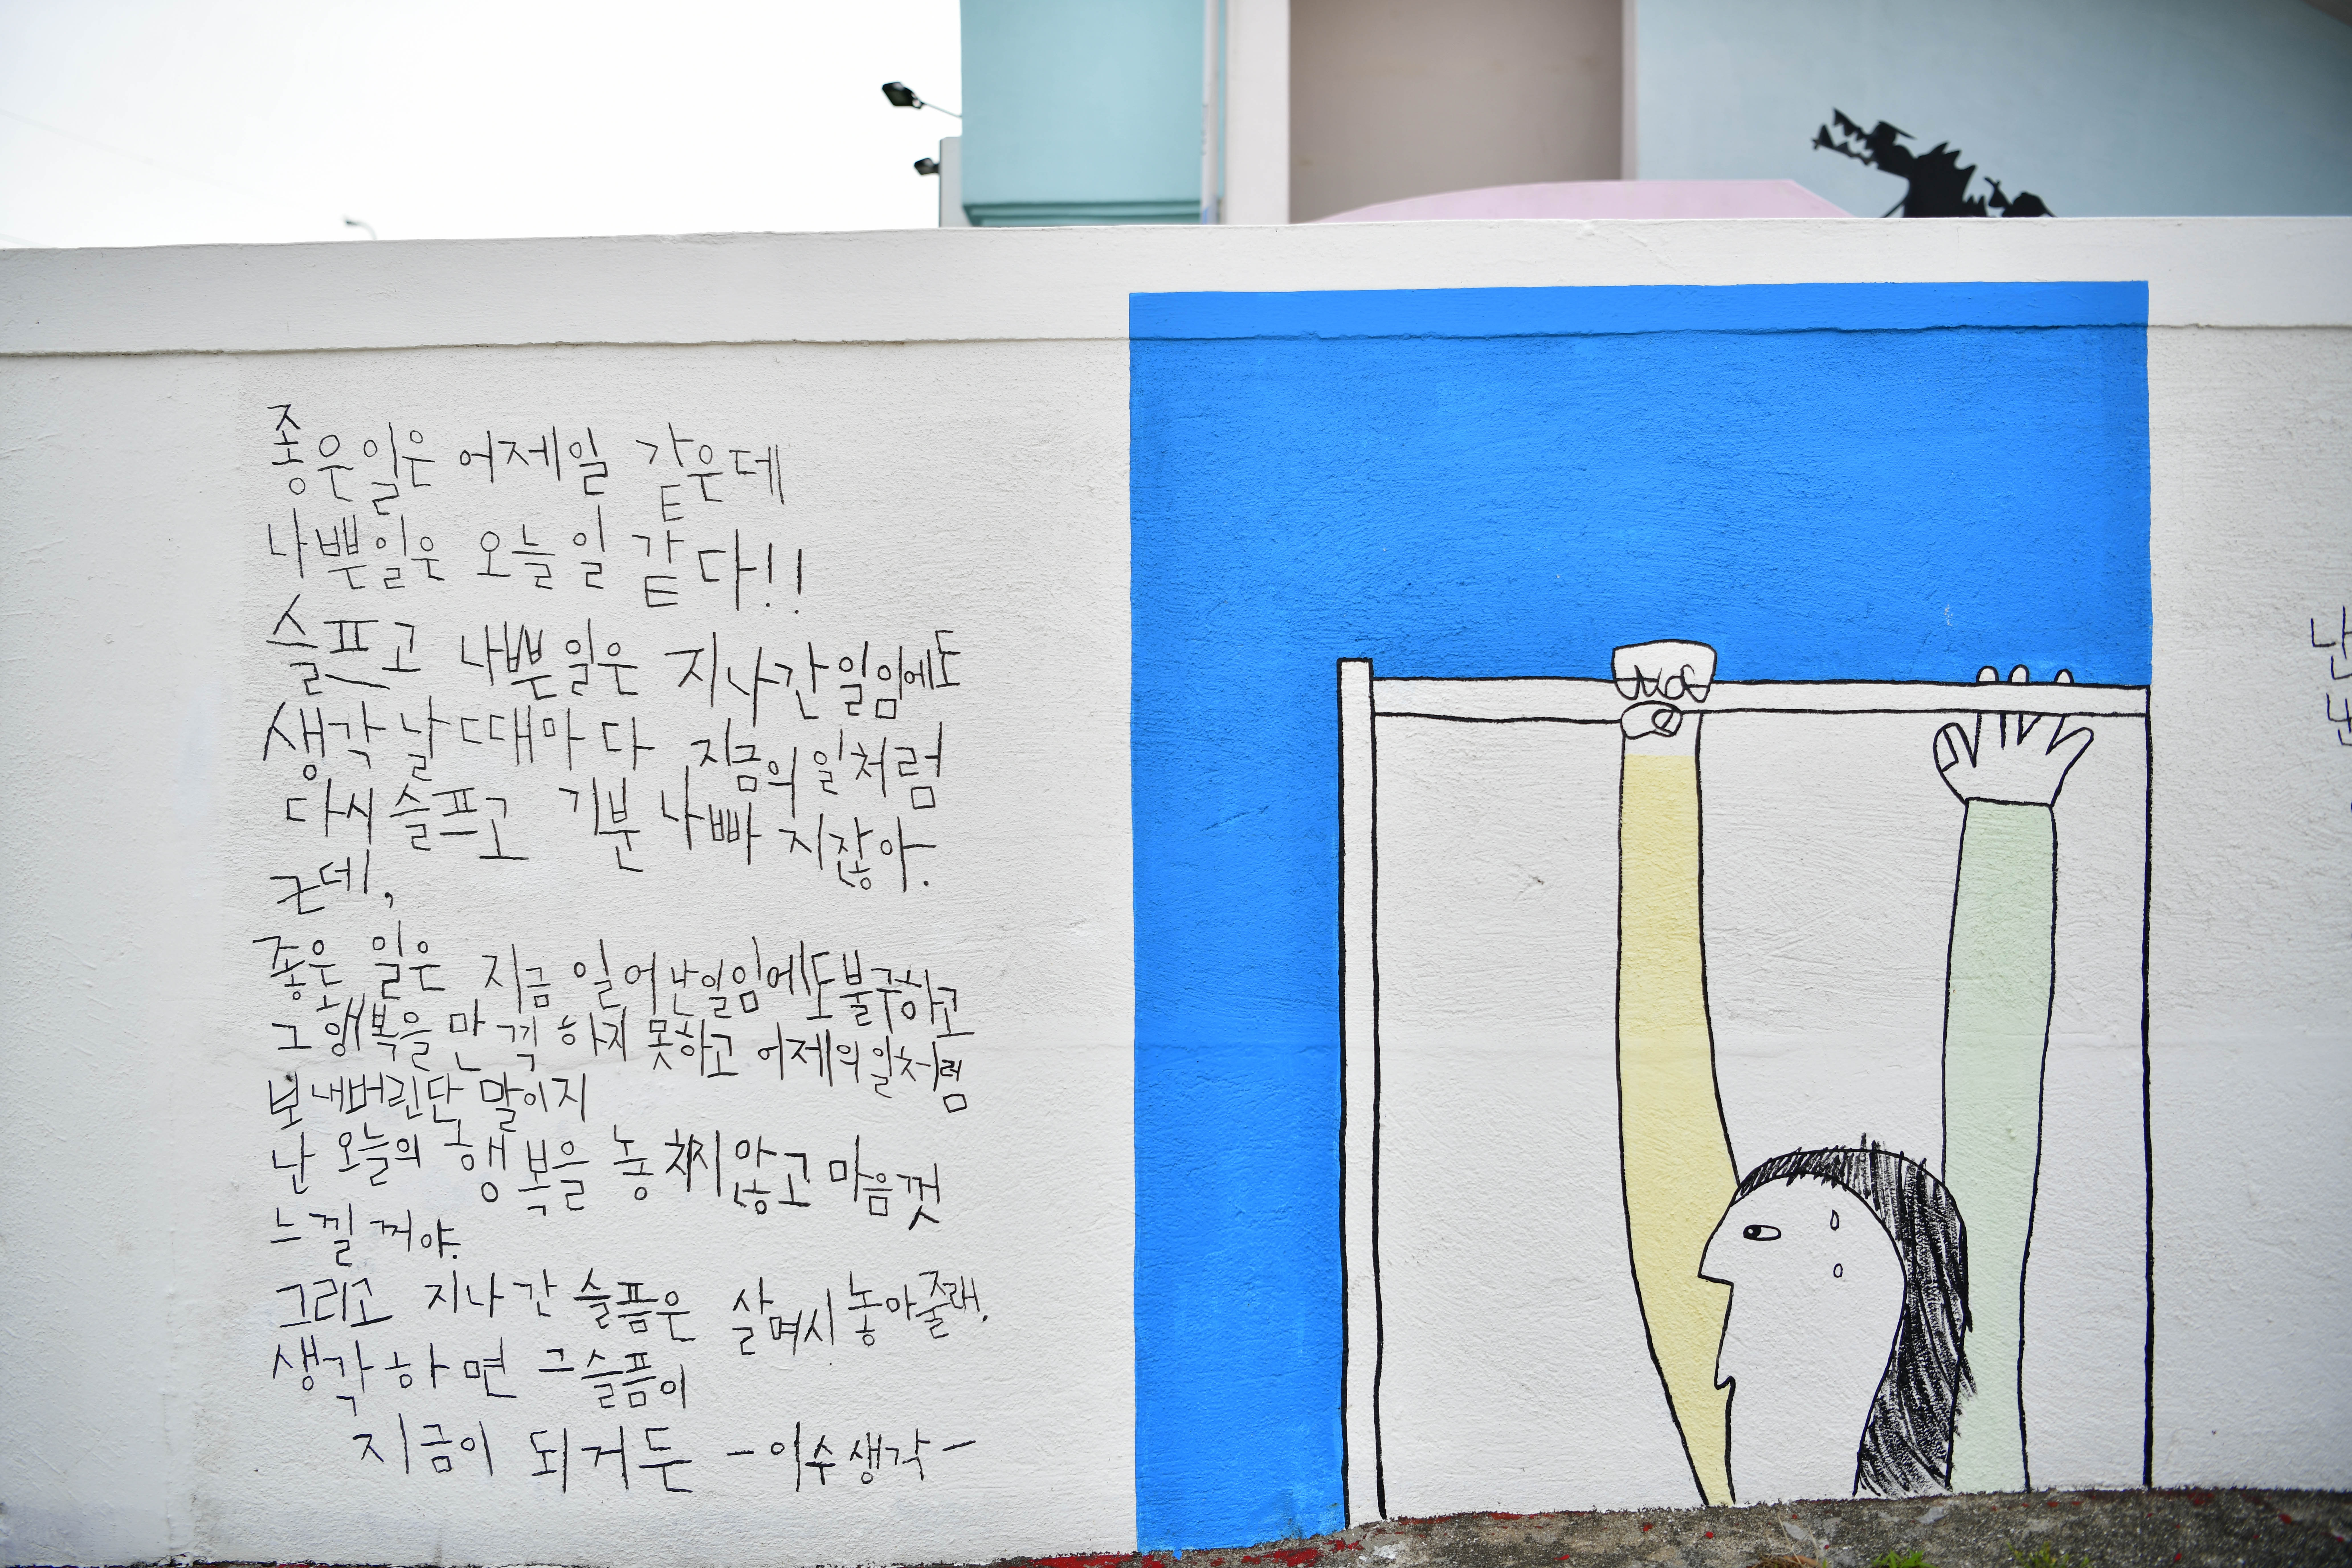 좋은일은 어제일 같은데
나쁜일은 오늘일 같다!!
슬프고 나쁜일은 지나간일임에도
생각날때마다 지금의일처럼
다시슬프고 기분나빠지잖아.
근데,
좋은 일은 지금 일어난일임에도불구하고
그행복을 만끽하지못하고 어제의일처럼
보내버린단 말이지
난 오늘의 행복을 놓치지않고 마음껏
느낄꺼야.
그리고 지나간 슬픔은 살며시놓아줄래.
생각하면 그슬픔이
지금이 되거든 -이수생각-
난